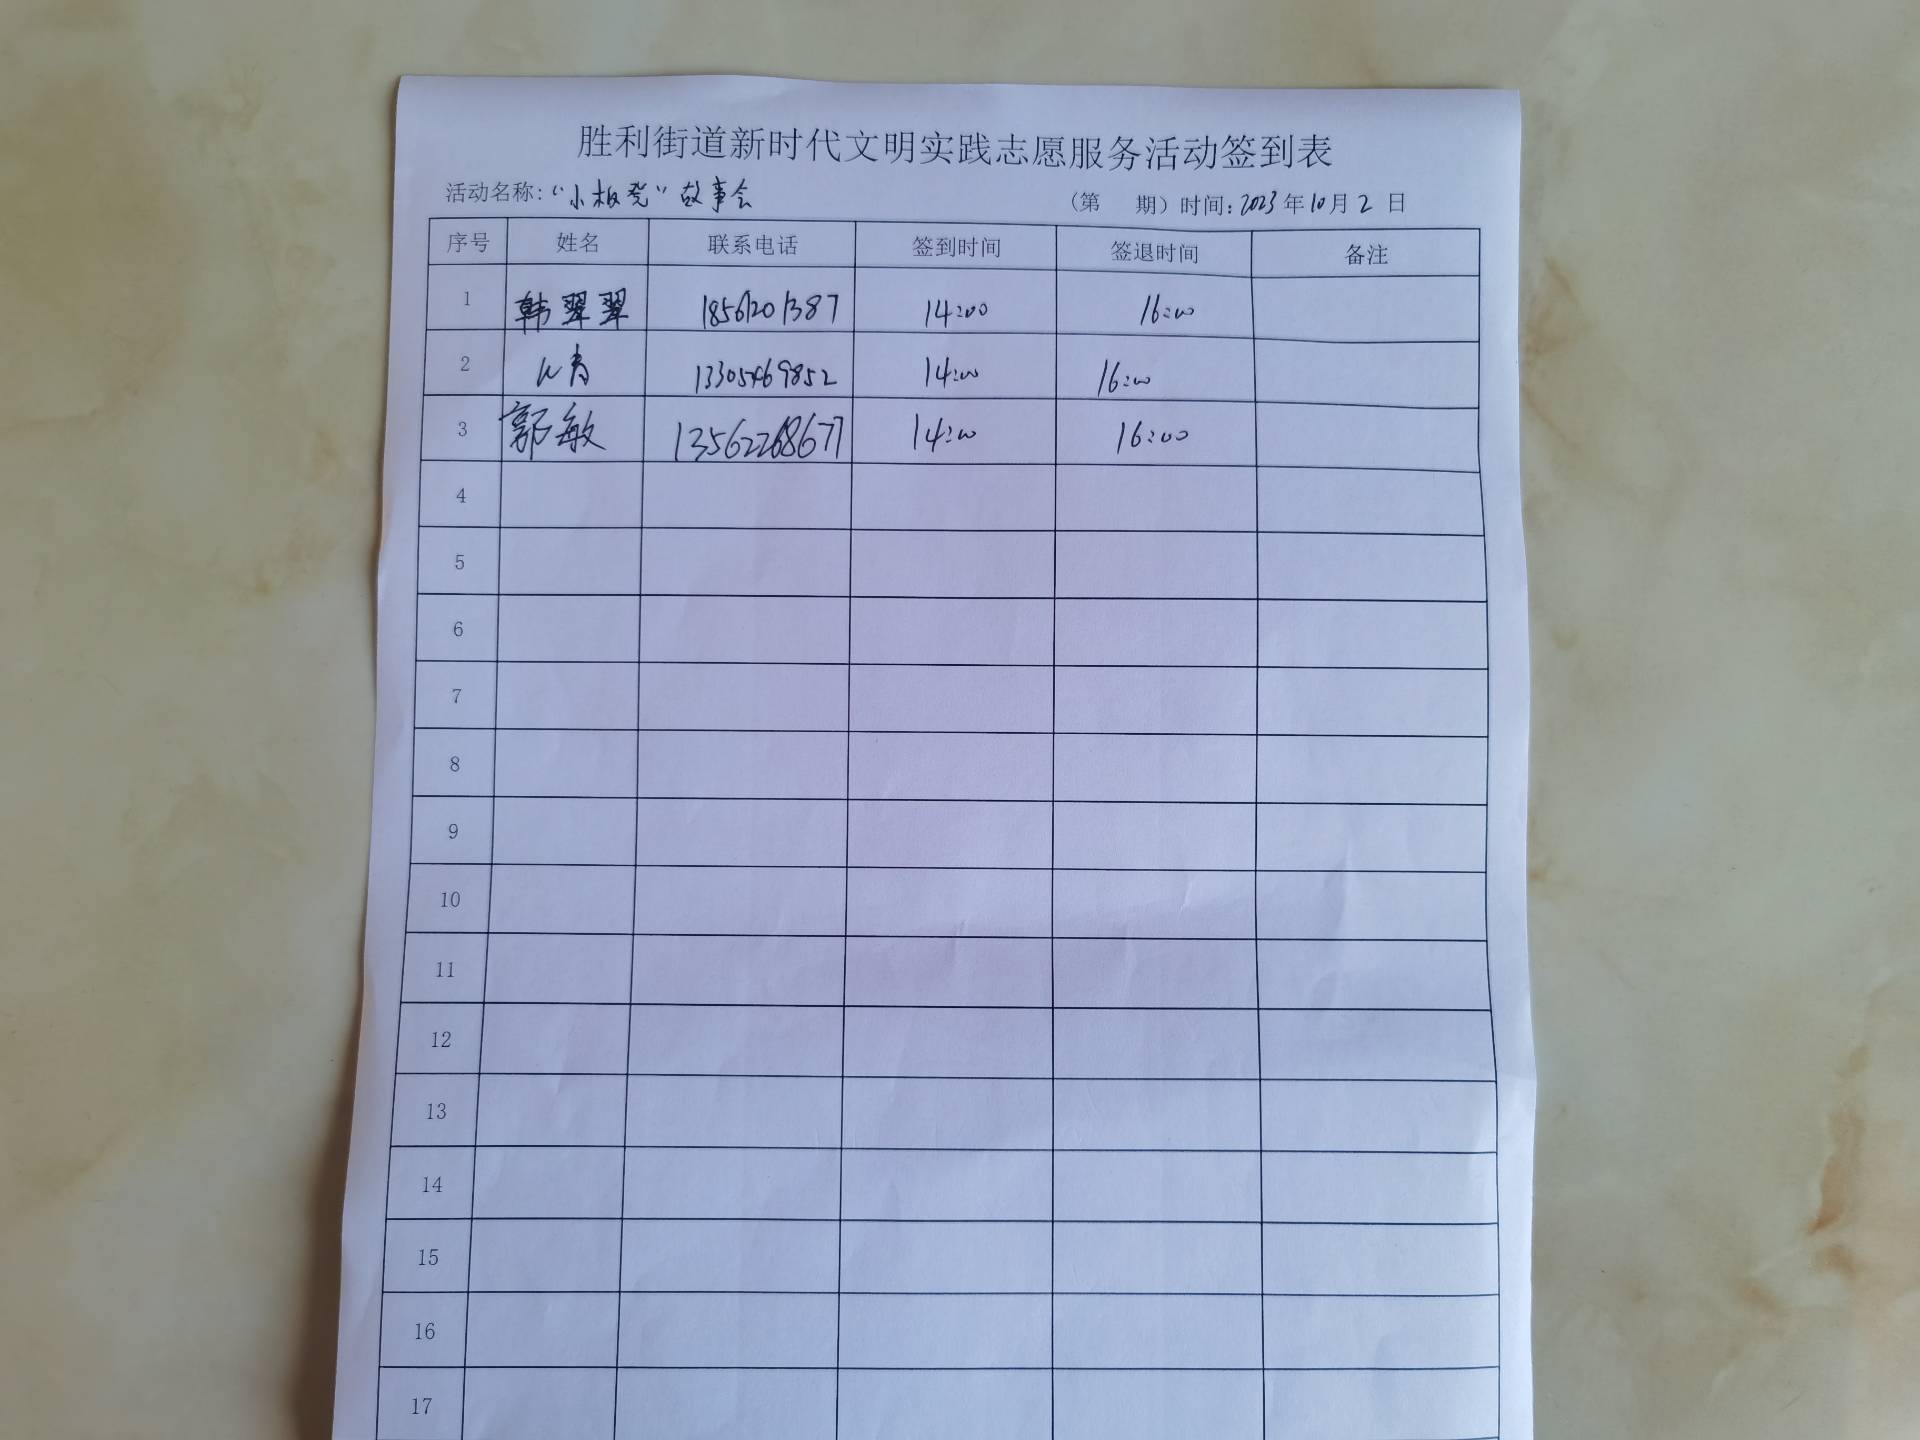 胜利街道新时代文明实践志愿服务活动签到表
活动名称:“小板凳”故事会 (第 期) 时间:2023年10月2日
序号 姓名 联系电话 签到时间 签退时间 备注
1 韩翠翠 18561201387 14:00 16:00
2 13305469852 14:00 16:00
3 郭敏 13562268677 14:00 16:00
4
5
6
7
8
9
10
11
12
13
14
15
16
17